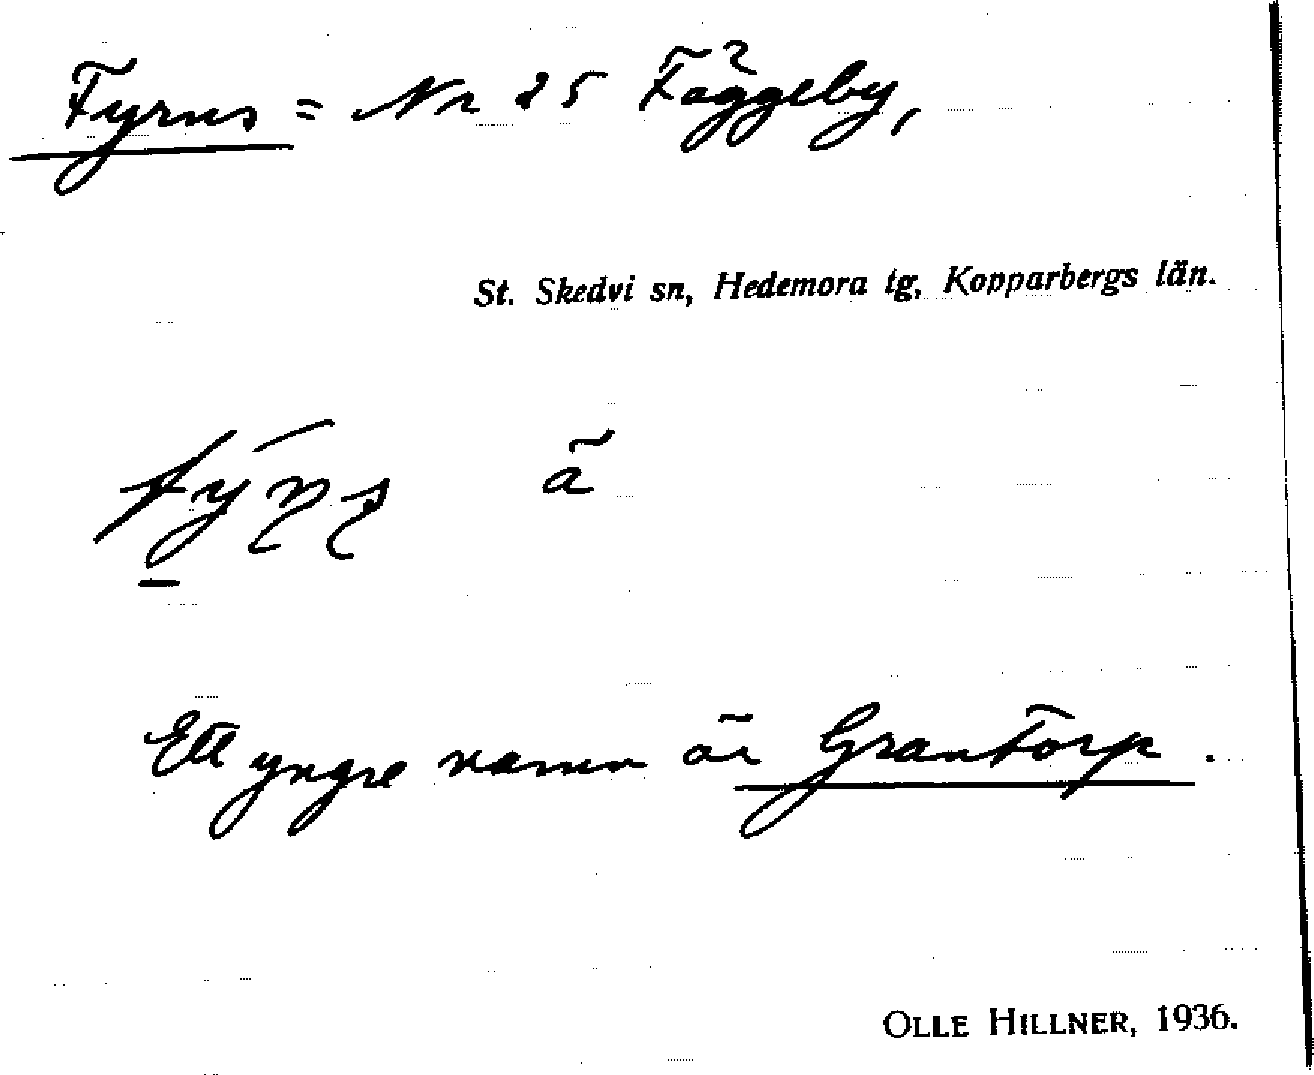 Fyrns = Nr 25 Fäggeby,
St. Skedvi sn, Hedemora tg, Kopparbergs län.
ã
Ett yngre namn är Grantorp.
OLLE HILLNER, 1936.